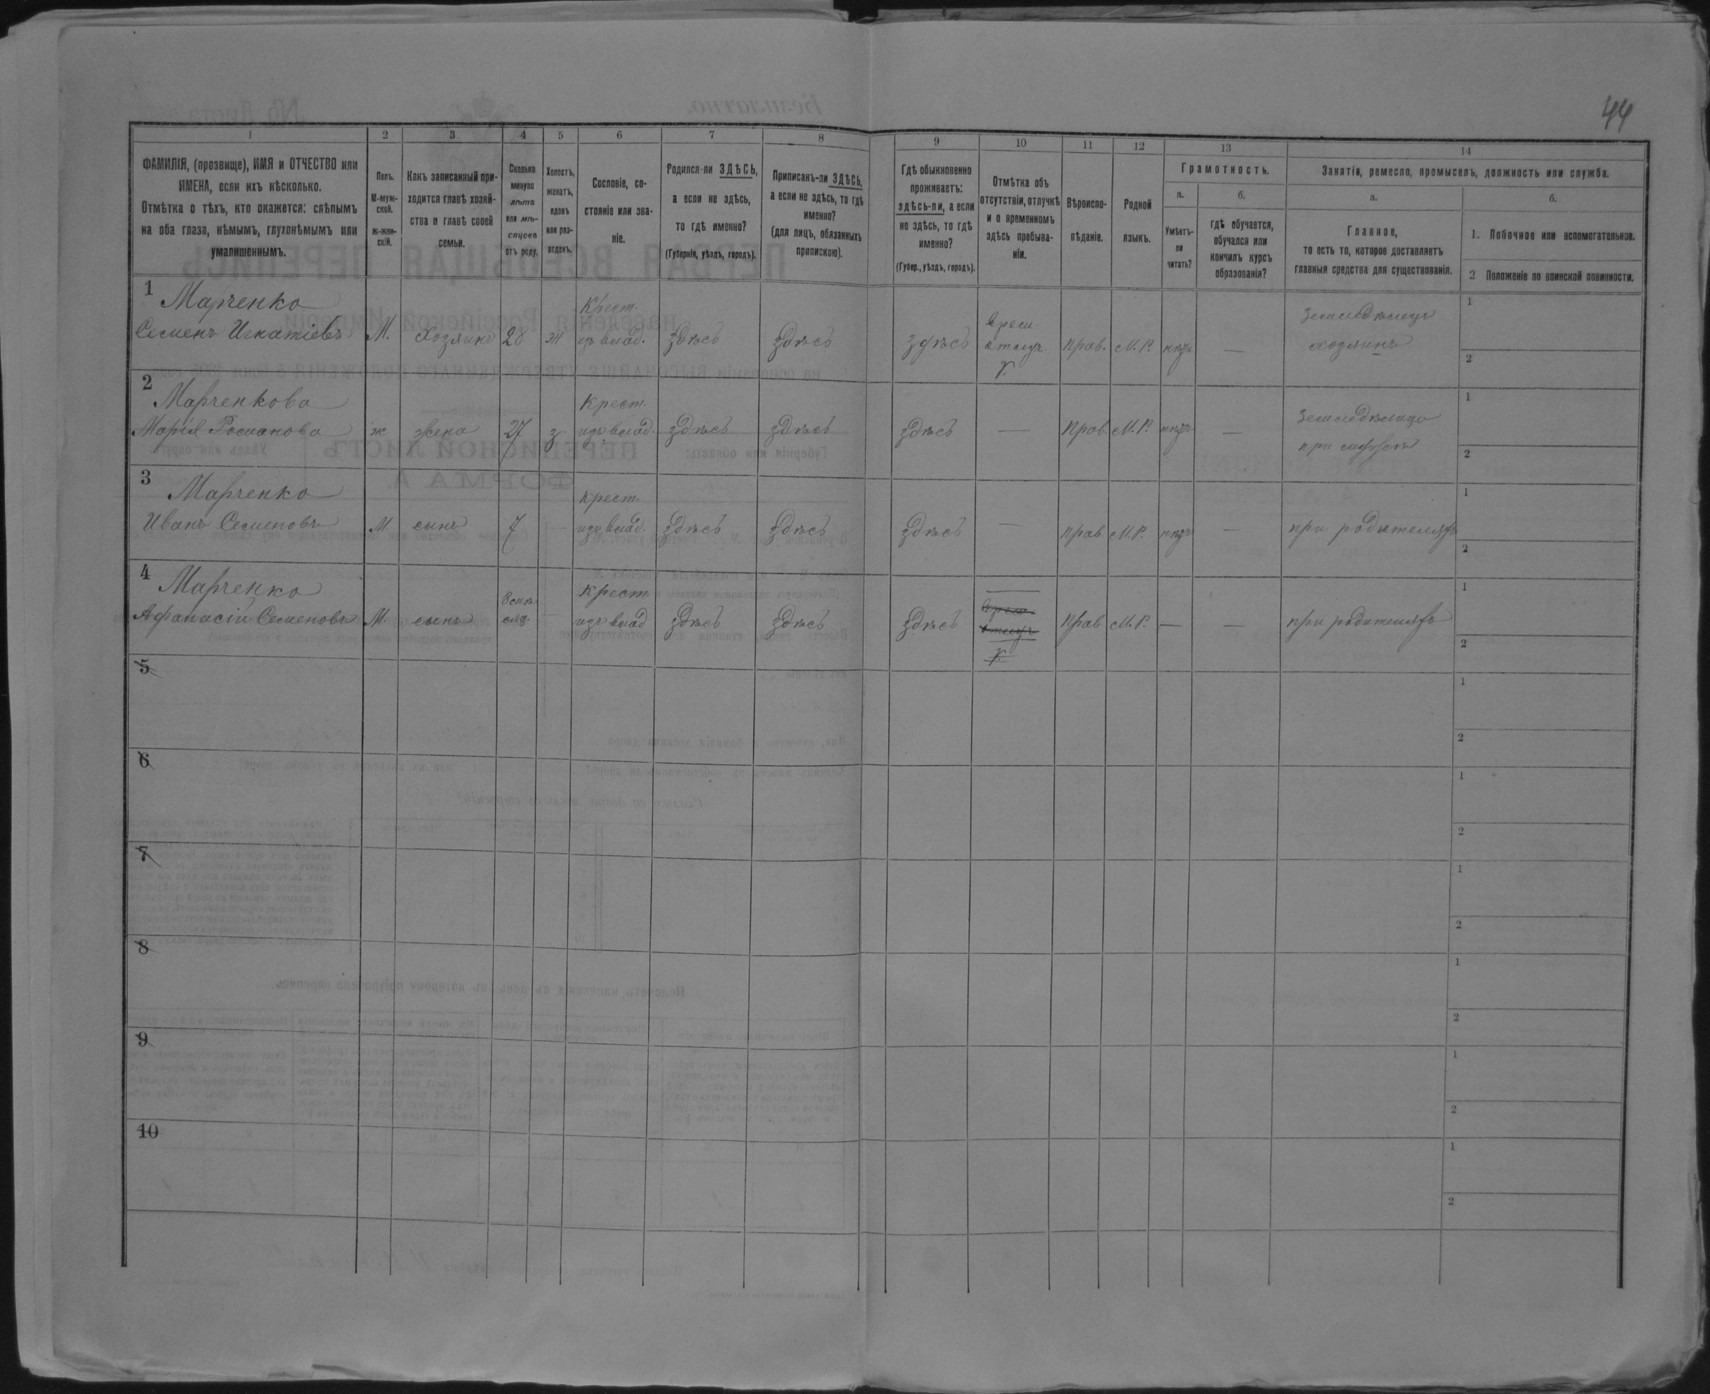 44
1 2 3 4 5 6 7 8 9 10 11 12 13 14
ФАМИЛІЯ, (прозвище), ИМЯ и ОТЧЕСТВО или
ИМЕНА, если ихъ нѣсколько.
Отмѣтка о тѣхъ, кто окажется: слѣпымъ
на оба глаза, нѣмымъ, глухонѣмымъ или
умалишеннымъ.
Полъ.
М-муж-
ской.
Ж-жен-
скій.
Какъ записанный при-
ходится главѣ хозяй-
ства и главѣ своей
семьи.
Сколько
минуло
лѣтъ
или мѣ-
сяцевъ
отъ роду.
Холостъ,
женатъ,
вдовъ
или раз-
веденъ.
Сословіе, со-
стояніе или зва-
ніе.
Родился-ли ЗДѢСЬ,
а если не здѣсь,
то гдѣ именно?
(Губернія, уѣздъ, городъ).
Приписанъ-ли ЗДѢСЬ,
а если не здѣсь, то гдѣ
именно?
(для лицъ, обязанныхъ
припискою).
Гдѣ обыкновенно
проживаетъ:
здѣсь-ли, а если
не здѣсь, то гдѣ
именно?
(Губер., уѣздъ, городъ).
Отмѣтка объ
отсутствіи, отлучкѣ
и о временномъ
здѣсь пребыва-
ніи.
Вѣроиспо-
вѣданіе.
Родной
языкъ.
Грамотность.
а.
Умѣетъ-
ли
читать?
б.
гдѣ обучается,
обучался или
кончилъ курсъ
образованія?
Занятіе, ремесло, промыселъ, должность или служба.
а.
Главное,
то есть то, которое доставляетъ
главныя средства для существованія.
б.
1. Побочное или вспомогательное.
2 Положеніе по воинской повинности.
1 Марченко
Семенъ Игнатіевъ М. Хозяинъ 28 ж Крест. изъ влад. здѣсь здѣсь здѣсь прав. М. Р. нѣтъ — Земледѣлецъ хозяинъ
1
2
2 Марченкова
Марія Романова ж жена 27 з Крест. изъ влад. здѣсь здѣсь здѣсь — Прав М. Р. нѣтъ Земледѣлица при мужѣ
1
2
3 Марченко
Иванъ Семеновъ М сынъ 7 — Крест. изъ влад. здѣсь здѣсь здѣсь — прав М. Р. нѣтъ — при родителяхъ
1
2
4 Марченко
Афанасій Семеновъ М. сынъ — Крест изъ влад здѣсь здѣсь здѣсь прав М. Р. — — при родителяхъ
1
2
5
1
2
6
1
2
7
1
2
8
1
2
9
1
2
10
1
2